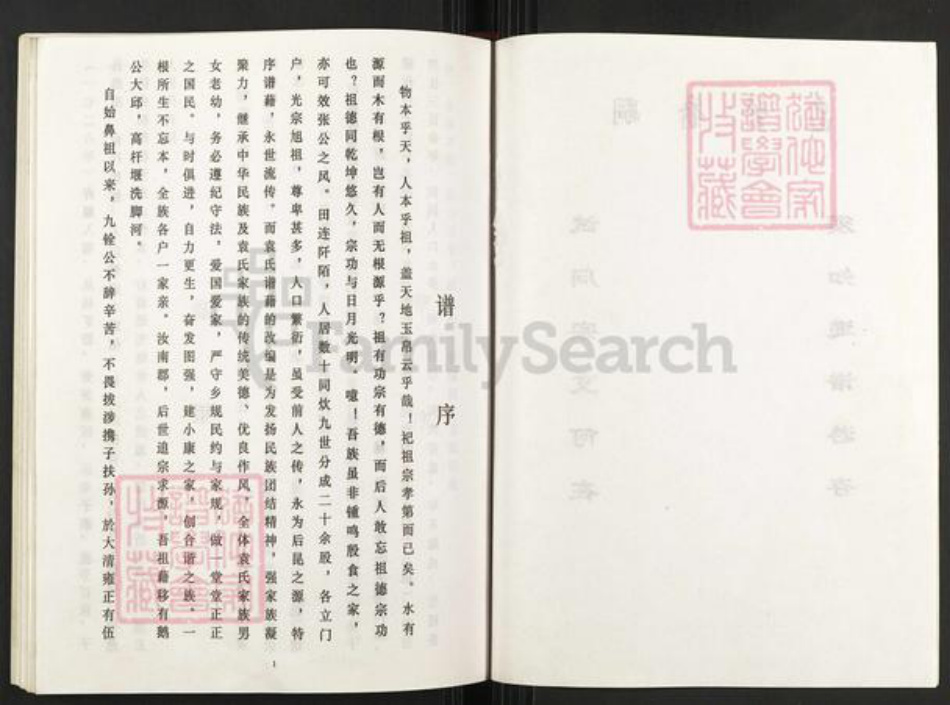 谱序
物本乎天，人本乎祖，盖天地玉帛云乎哉！祀祖宗孝第而已矣。水有
源而木有根，岂有人而无根源乎？祖有功宗有德，而后人敢忘祖德宗功
也？祖德同乾坤悠久，宗功与日月光明。噫！吾族虽非锺鸣殷食之家，
亦可效张公之风。田连阡陌，人居数十同炊九世分成二十余股，各立门
户，光宗旭祖，尊卑甚多，人口繁衍，虽受前人之传，永为后昆之源，特
序谱藉，永世流传。而袁氏谱藉的改编是为发扬民族团结精神，强家族凝
聚力，继承中华民族及袁氏家族的传统美德、优良作风，全体袁氏家族男
女老幼，务必遵纪守法。爱国爱家，严守乡规民约与家规，做一堂堂正正
之国民。与时俱进，自力更生，奋发图强，建小康之家，创合谐之族。一
根所生不忘本，全族各户一家亲。汝南郡，后世追宗求源，吾祖藉移有鹅
公大邱，高杆堰洗脚河。
自始鼻祖以来，九铨公不辞辛苦，不畏拨涉携子扶孙，於大清雍正有伍
1
FamilySearch